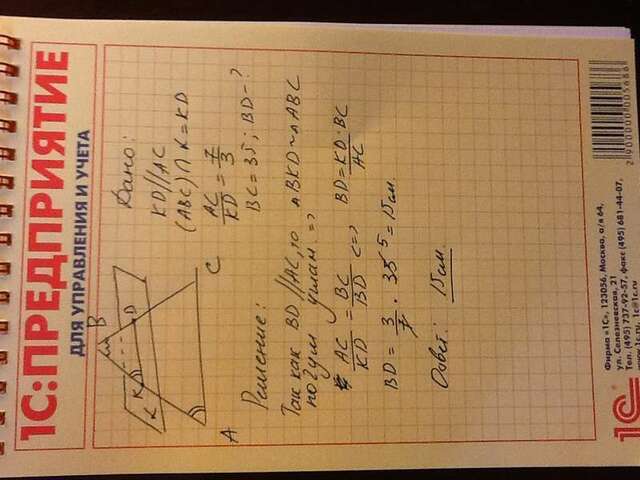 1С:ПРЕДПРИЯТИЕ
ДЛЯ УПРАВЛЕНИЯ И УЧЕТА
Дано:
KD//AC
(ABC)∩K=KD
AC/KD=7/3
BC=35; BD-?
B
K
K
D
A
C
Решение:
Так как BD//AC, то △BKD~△ABC
по двум углам =>
AC/KD=BC/BD <=> BD=KD·BC/AC
BD=3/7·35 5=15см.
Ответ: 15см.
2900000005686
1С
Фирма «1С», 123056, Москва, а/я 64,
ул. Селезневская, 21
Тел. (495) 737-92-57, факс (495) 681-44-07,
1c@1c.ru